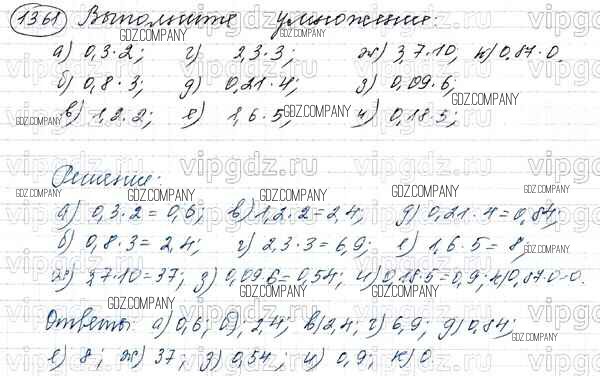 1361 Выполните умножение:
а) 0,3·2; г) 2,3·3; ж) 3,7·10; к) 0,87·0.
б) 0,8·3; д) 0,21·4; з) 0,09·6;
в) 1,2·2; е) 1,6·5; и) 0,18·5;
Решение:
а) 0,3·2=0,6; в) 1,2·2=2,4; д) 0,21·4=0,84;
б) 0,8·3=2,4; г) 2,3·3=6,9; е) 1,6·5=8;
ж) 3,7·10=37; з) 0,09·6=0,54; и) 0,18·5=0,9; к) 0,87·0=0.
Ответы: а) 0,6; б) 2,4; в) 2,4; г) 6,9; д) 0,84;
е) 8; ж) 37; з) 0,54; и) 0,9; к) 0.
GDZ.COMPANY
vipgdz.ru